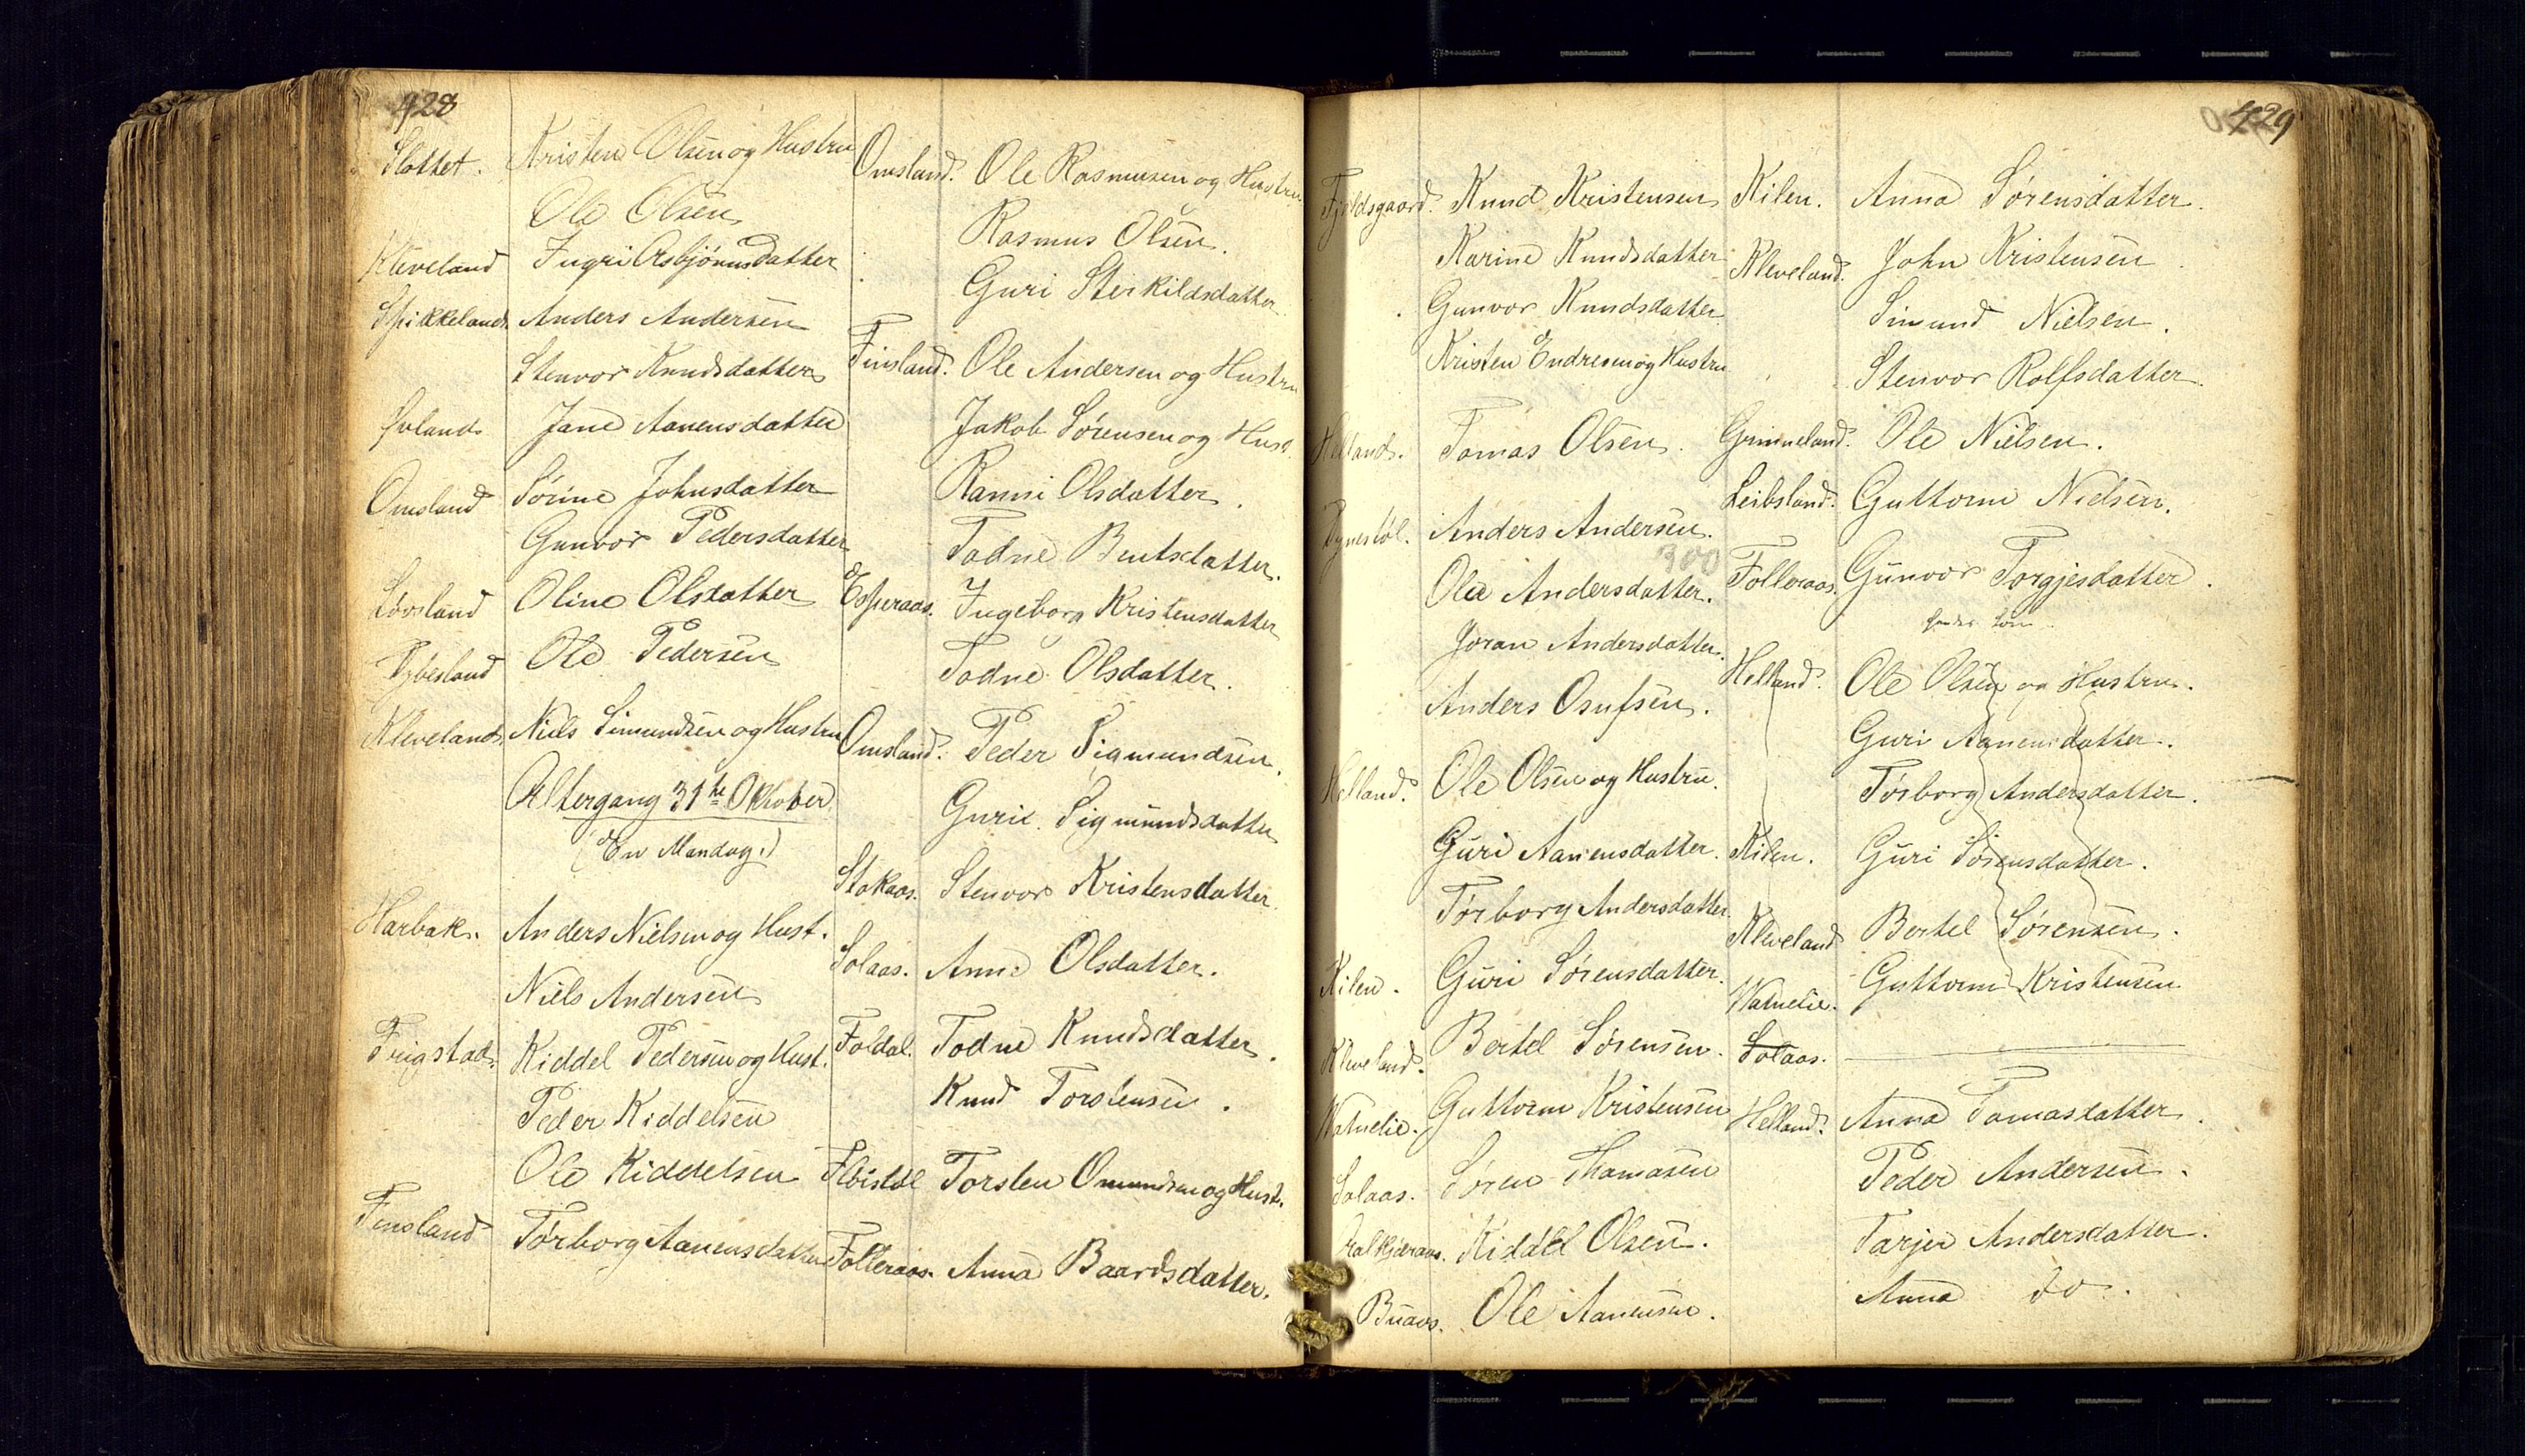 428
Slottet. Kristen Olsen og Hustru
Ole Olsen
Kleveland Ingri Asbjörnsdatter
Spikkeland Anders Andersen
Stenvor Knudsdatter
Øvland Jane Aanensdatter
Omsland Sörine Johnsdatter
Gunvor Pedersdatter
Lövsland Oline Olsdatter
Dybesland Ole Pedersen
Kleveland Niels Simundsen og Hustru
Altergang 31te Oktober
(En Mandag.)
Harbak. Anders Nielsen og Hust.
Niels Andersen
Frigstad. Kiddel Pedersen og Hust.
Peder Kiddelsen
Ole Kiddelsen
Finsland Törborg Aanensdatter
Omsland. Ole Rasmusen og Hustru
Rasmus Olsen.
Guri Sterkildsdatter
Finsland. Ole Andersen og Hustru
Jakob Sörensen og Hust.
Ranni Olsdatter.
Todne Bentsdatter.
Esperaas. Ingeborg Kristensdatter
Todne Olsdatter.
Omsland. Peder Sigmundsen.
Gurie Sigmundsdatter
Stokaas. Stenvor Kristensdatter.
Solaas. Anne Olsdatter.
Foldal. Todne Knudsdatter.
Knud Torstensen.
Flöistöl Torsten Omundsen og Hust.
Folleraas. Anna Baardsdatter.
429
Fjeldsgaard. Knud Kristensen
Karine Knudsdatter
Gunvor Knudsdatter
Kristen Endresen og Hustru
Helland. Tomas Olsen.
Dynestöl. Anders Andersen.
300
Olea Andersdatter.
Joran Andersdatter.
Anders Osufsen.
Helland. Ole Olsen og Hustru.
Guri Aanensdatter.
Törborg Andersdatter
Kilen. Guri Sörensdatter.
Kleveland. Bertel Sörensen.
Vatnelie. Guttorm Kristensen
Solaas. Sören Thomasen
Aalkjæraas. Kiddel Olsen.
Buaas. Ole Aanensen.
Kilen. Anna Sörensdatter.
Kleveland. John Kristensen
Simund Nielsen.
Stenvor Rolfsdatter.
Grimneland. Ole Nielsen.
Leibsland. Guttorm Nielsen.
Folleraas. Gunvor Torgjesdatter.
Helland. Ole Olsen og Hustru.
Guri Aanensdatter.
Törborg Andersdatter.
Kilen. Guri Sörensdatter.
Kleveland Bertel Sörensen.
Vatnelie. Guttorm Kristensen
Solaas.
Helland. Anna Tomasdatter.
Peder Andersen.
Tarjer Andersdatter.
Anna do.